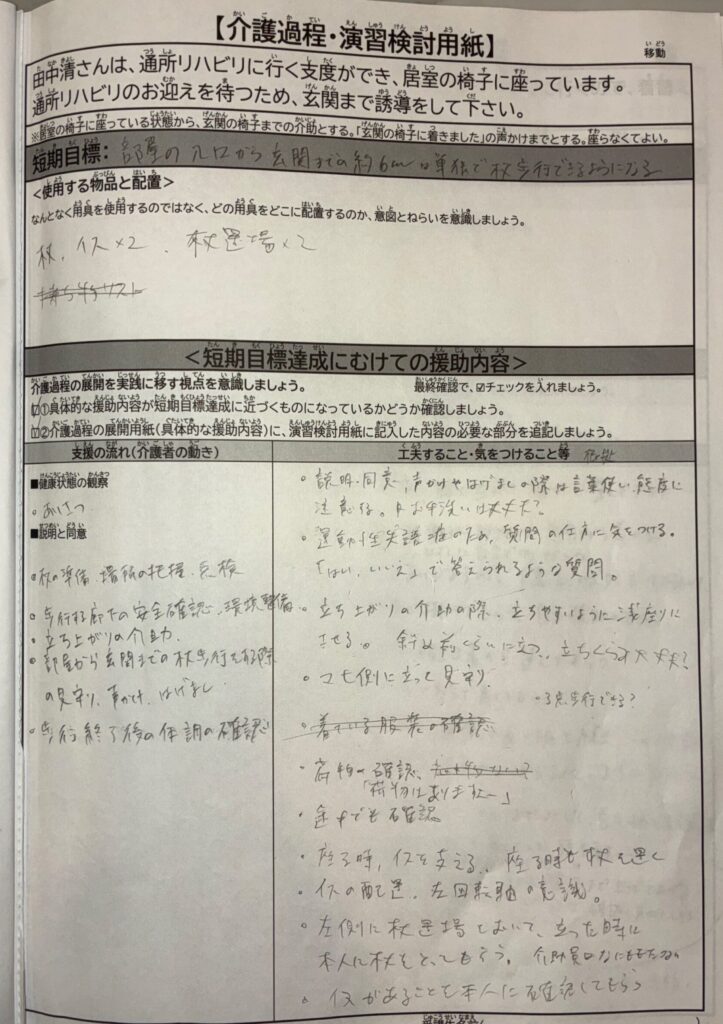 【介護過程・演習検討用紙】
移動
田中清さんは、通所リハビリに行く支度ができ、居室の椅子に座っています。
通所リハビリのお迎えを待つため、玄関まで誘導をして下さい。
※居室の椅子に座っている状態から、玄関の椅子までの介助とする。「玄関の椅子に着きました」の声かけまでとする。座らなくてよい。
短期目標：部屋の入口から玄関までの約6mは単独で杖歩行できるようになる
<使用する物品と配置>
なんとなく用具を使用するのではなく、どの用具をどこに配置するのか、意図とねらいを意識しましょう。
杖、イス×2、杖置場×2
<短期目標達成にむけての援助内容>
介護過程の展開を実践に移す視点を意識しましょう。
最終確認で、☑チェックを入れましょう。
□①具体的な援助内容が短期目標達成に近づくものになっているかどうか確認しましょう。
□②介護過程の展開用紙(具体的な援助内容)に、演習検討用紙に記入した内容の必要な部分を追記しましょう。
支援の流れ(介護者の動き)
工夫すること・気をつけること等
■健康状態の観察
・あいさつ
■説明と同意
・杖の準備、場所の把握、点検
・歩行する廊下の安全確認、環境整備
・立ち上がりの介助。
・部屋から玄関までの杖歩行をする際
の見守り、声かけ、はげまし
・歩行終了後の体調の確認
・説明・同意、声かけやはげましの際は言葉使い、態度に
注意する。お手洗いは大丈夫?
・運動性失語症のため、質問の仕方に気をつける。
「はい、いいえ」で答えられるような質問。
・立ち上がりの介助の際、立ちやすいように浅座りに
させる。斜め前くらいに立つ、立ちくらみ大丈夫?
・マヒ側に立って見守り
・3点歩行できる?
・着ている服装の確認
・荷物の確認、
「荷物はありません」
・途中でも確認
・座る時、イスを支える、座る時も杖を置く
・イスの配置、左回転軸の意識。
・左側に杖置場をおいて、立った時に
本人に杖をとってもらう。
・イスがあることを本人に確認してもらう